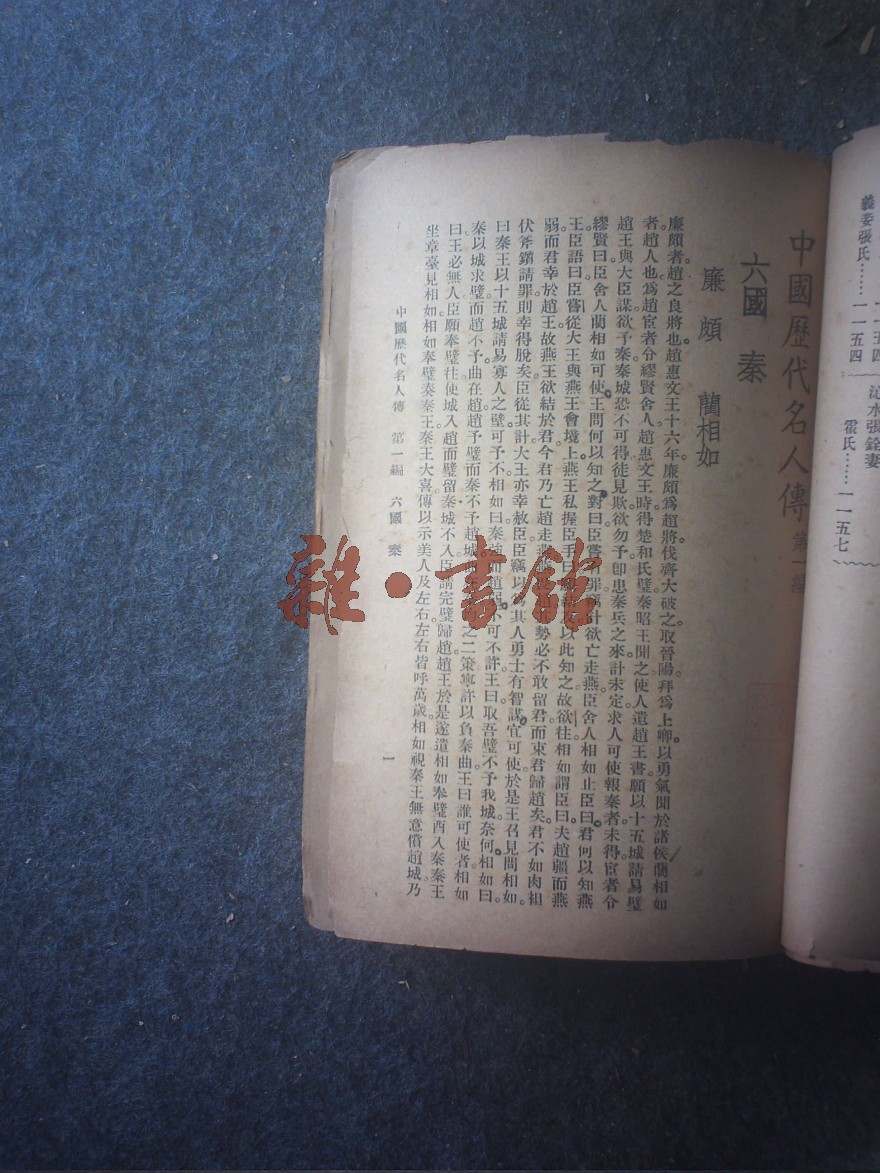 義妾張氏……一一五四
沁水張銓妻
霍氏……一一五七
中國歷代名人傳 第一編
六國 秦
廉頗 藺相如
廉頗者。趙之良將也。趙惠文王十六年。廉頗爲趙將伐齊。大破之。取晉陽。拜爲上卿。以勇氣聞於諸侯。藺相如
者。趙人也。爲趙宦者令繆賢舍人。趙惠文王時。得楚和氏璧。秦昭王聞之。使人遺趙王書。願以十五城請易璧
趙王與大臣謀。欲予秦。秦城恐不可得。徒見欺。欲勿予。卽患秦兵之來。計未定。求人可使報秦者。未得。宦者令
繆賢曰。臣舍人藺相如可使。王問何以知之。對曰。臣嘗有罪。竊計欲亡走燕。臣舍人相如止臣曰。君何以知燕
王。臣語曰。臣嘗從大王與燕王會境上。燕王私握臣手曰。願結友。以此知之。故欲往。相如謂臣曰。夫趙彊而燕
弱。而君幸於趙王。故燕王欲結於君。今君乃亡趙走燕。燕畏趙。其勢必不敢留君。而束君歸趙矣。君不如肉袒
伏斧鑕請罪。則幸得脫矣。臣從其計。大王亦幸赦臣。臣竊以爲其人勇士。有智謀。宜可使。於是王召見。問相如。
曰。秦王以十五城請易寡人之璧。可予不。相如曰。秦強而趙弱。不可不許。王曰。取吾璧。不予我城。奈何。相如曰。
秦以城求璧而趙不予。曲在趙。趙予璧而秦不予趙城。曲在秦。均之二策。寧許以負秦曲。王曰。誰可使者。相如
曰。王必無人。臣願奉璧往使。城入趙而璧留秦。城不入。臣請完璧歸趙。趙王於是遂遣相如奉璧西入秦。秦王
坐章臺見相如。相如奉璧奏秦王。秦王大喜。傳以示美人及左右。左右皆呼萬歲。相如視秦王無意償趙城。乃
中國歷代名人傳 第一編 六國 秦
一
雜·書館